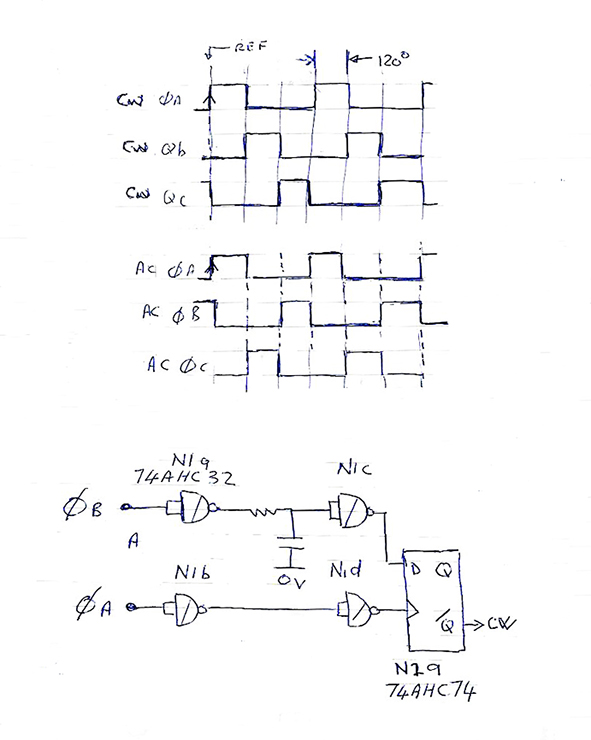 REF
120°
CW ØA
CW Qb
CW Qc
AC ØA
AC ØB
AC ØC
N1a
74AHC32
N1c
ØB
A
0V
N1b
N1d
ØA
D Q
/Q
CW
N29
74AHC74